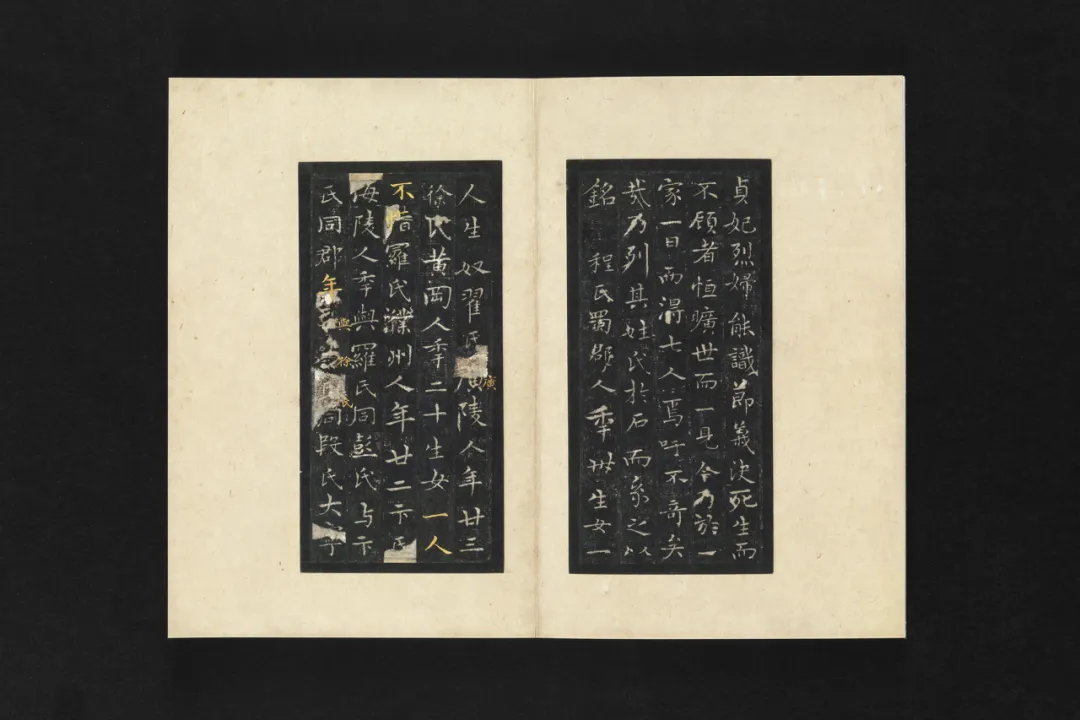 貞妃烈婦能識節義決死生而
不顧者恒曠世而一見今乃於一
家一日而得七人焉吁不奇矣
哉乃列其姓氏於石而系之以
銘 程氏蜀郡人年卅生女一
人生奴翟氏廣陵人年廿三
徐氏黄岡人年二十生女一人
不惜羅氏濮州人年廿二卞氏
海陵人年與羅氏同彭氏与卞
氏同郡年與徐氏同段氏大寧